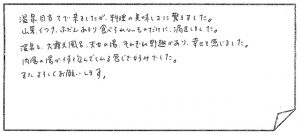 温泉目当てで来ましたが、料理の美味しさに驚きました。
山菜、イワナ、ふだんあまり食べられないものだけに、満足しました。
温泉も、大露天風呂、天女の湯、それぞれ野趣があり、幸せを感じました。
内風呂の湯が浅くなんでくれる感じで好みでした。
またよろしくお願いします。